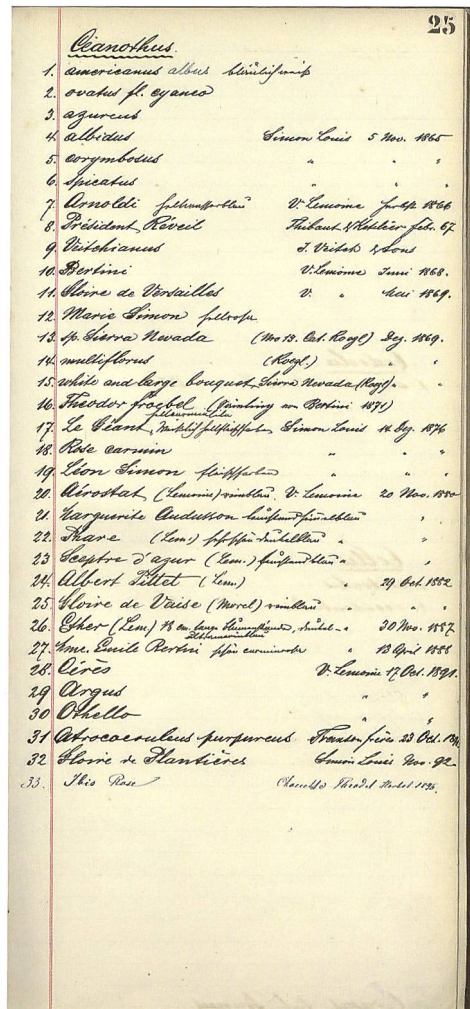 25
Ceanothus.
1. americanus albus bläulichweiß
2. ovatus fl. cyaneo
3. azureus
4. albidus Simon Louis 5 Nov. 1865
5. corymbosus " " "
6. spicatus " " "
7. Arnoldi V. Lemoine 1866
8. Président Réveil Thibaut & Keteleer Feb. 67
9. Veitchianus J. Veitch & Sons
10. Bertini V. Lemoine Juni 1868.
11. Gloire de Versailles V. " Mai 1869.
12. Marie Simon hellrosa
13. sp. Sierra Nevada (No 13. Oct. Roezl) Dez. 1869.
14. multiflorus (Roezl.) "
15. white and large bouquet Sierra Nevada (Roezl) " "
16. Theodor Froebel (Sämling von Bertini 1871)
17. Le Géant, Simon Louis 14 Dez. 1876
18. Rose carmin " " "
19. Léon Simon fleischfarben " " "
20. Aérostat (Lemoine) reinblau V. Lemoine 20 Nov. 1880
21. Marguerite Audusson " "
22. Phare (Lem.) dunkelblau " "
23 Sceptre d'azur (Lem.) " "
24. Albert Pittet (Lem) 29 Oct. 1882
25. Gloire de Vaise (Morel) reinblau " "
26. Esther (Lem.) 18 cm. lange dunkel- " 30 Nov. 1887
ultramarinblau
27. Mme. Emile Bertini schön carminrosa " 13 April 1888
28 Cérès V. Lemoine 17 Oct. 1891.
29 Argus " "
30 Othello " "
31 Atrocoeruleus purpureus frères 23 Oct.
32 Gloire de Plantières Simon Louis Nov. 92
33. Ibis Rose Herbst 1895.